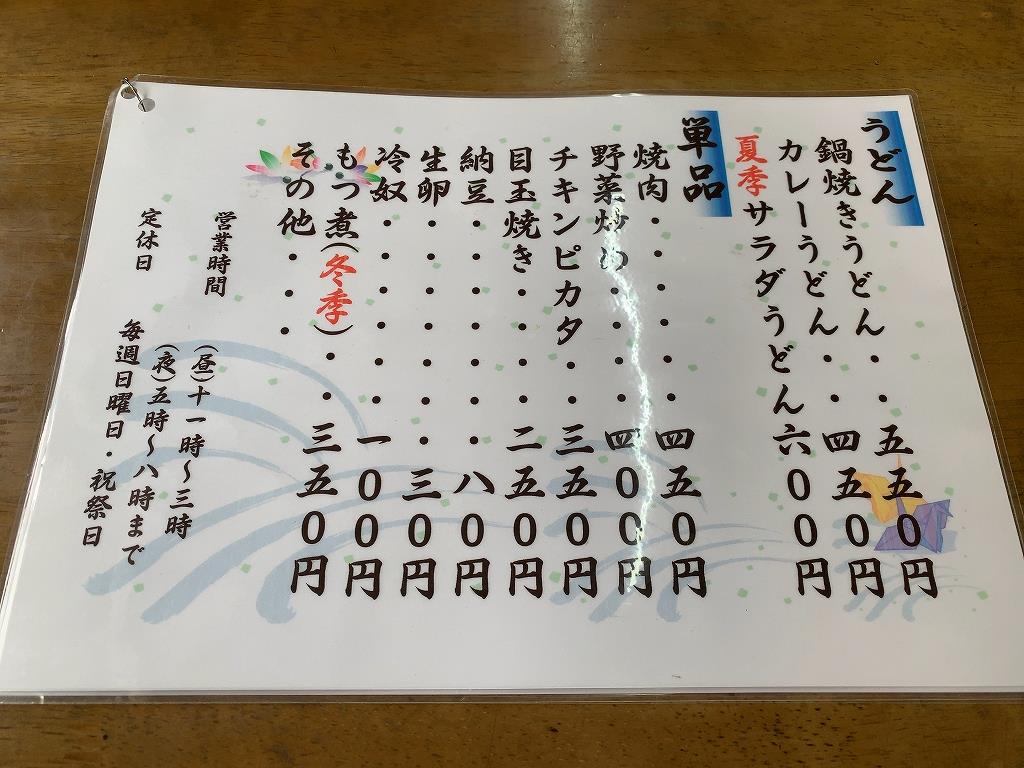 うどん
鍋焼きうどん・・五五0円
カレーうどん・・四五0円
夏季サラダうどん六00円
単品
焼肉・・・・・・四五0円
野菜炒め・・・・四00円
チキンピカタ・・三五0円
目玉焼き・・・・二五0円
納豆・・・・・・・八0円
生卵・・・・・・・三0円
冷奴・・・・・・一00円
もつ煮(冬季)・・三五0円
その他・・・
営業時間 (昼)十一時〜三時
(夜)五時〜八時まで
定休日 毎週日曜日・祝祭日